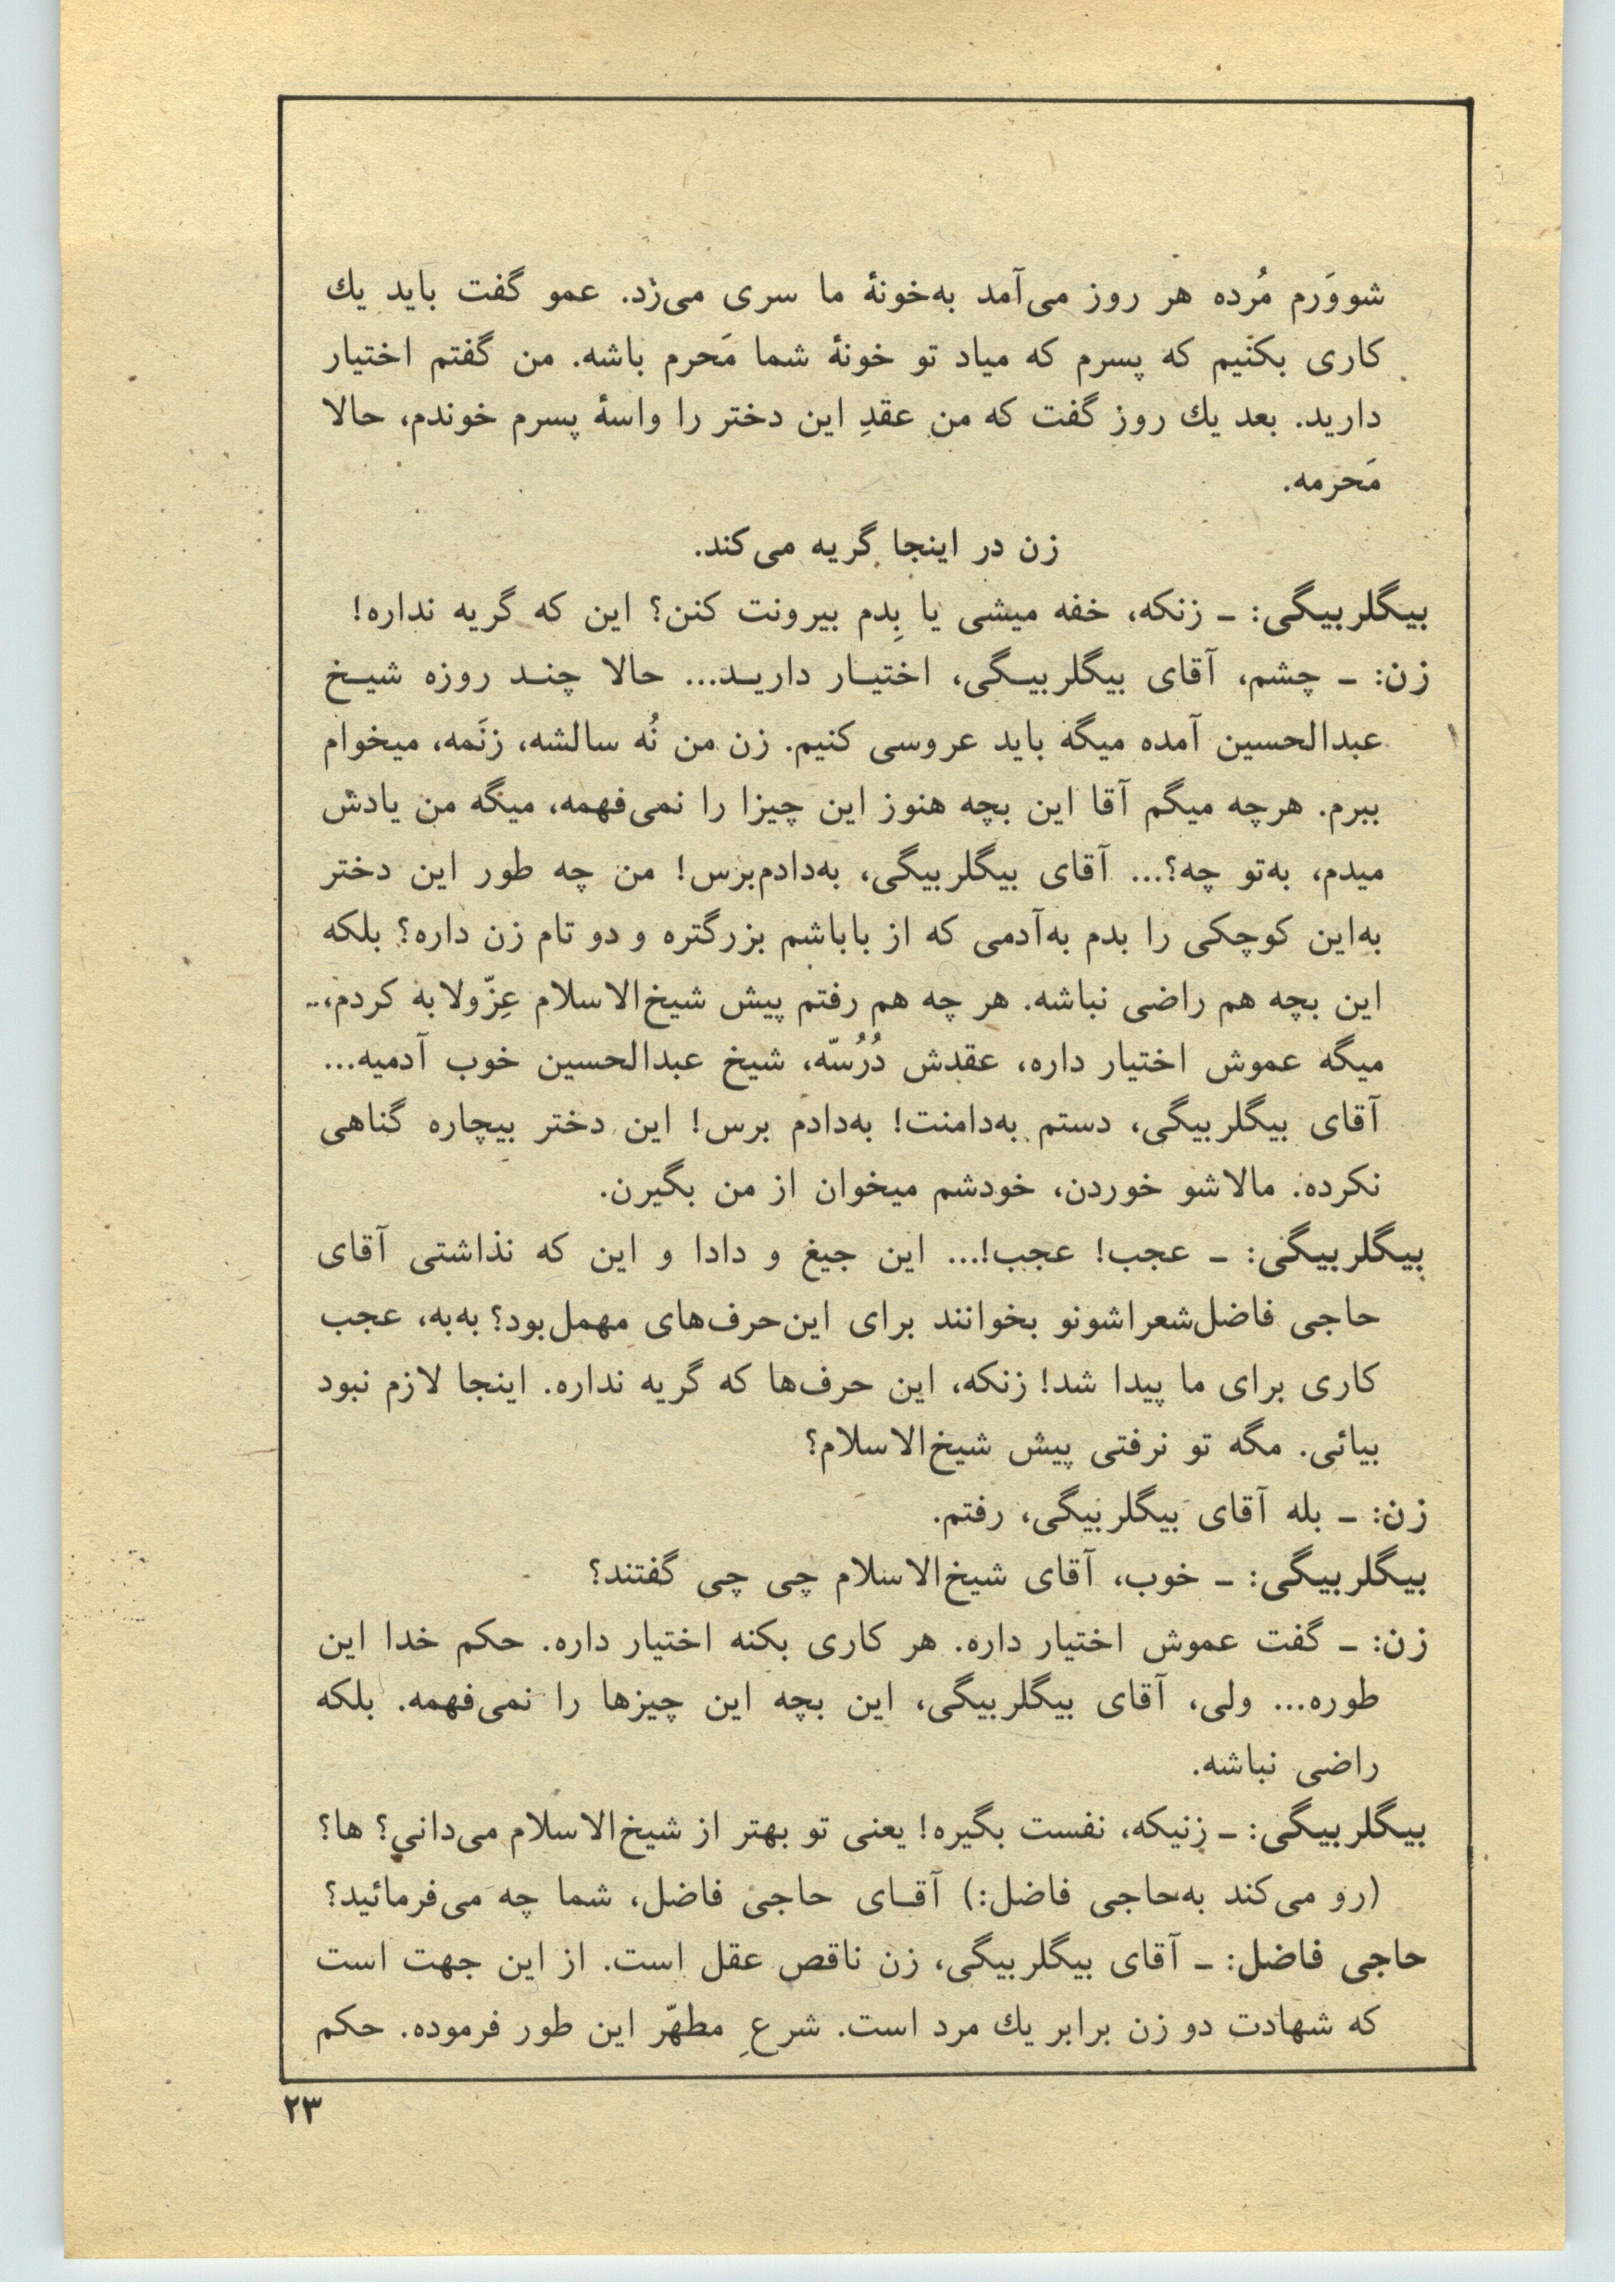 شووَرم مُرده هر روز می‌آمد به‌خونهٔ ما سری می‌زد. عمو گفت باید یك
کاری بکنیم که پسرم که میاد تو خونهٔ شما مَحرم باشه. من گفتم اختیار
دارید. بعد یك روز گفت که من عقدِ این دختر را واسهٔ پسرم خوندم، حالا
مَحرمه.
زن در اینجا گریه می‌کند.
بیگلربیگی: ـ زنکه، خفه میشی یا بِدم بیرونت کنن؟ این که گریه نداره!
زن: ـ چشم، آقای بیگلربیـگی، اختیـار داریـد... حالا چنـد روزه شیـخ
عبدالحسین آمده میگه باید عروسی کنیم. زن من نُه سالشه، زنَمه، میخوام
ببرم. هرچه میگم آقا این بچه هنوز این چیزا را نمی‌فهمه، میگه من یادش
میدم، به‌تو چه؟... آقای بیگلربیگی، به‌دادم‌برس! من چه طور این دختر
به‌این کوچکی را بدم به‌آدمی که از باباشم بزرگتره و دو تام زن داره؟ بلکه
این بچه هم راضی نباشه. هر چه هم رفتم پیش شیخ‌الاسلام عِزّولابه کردم،..
میگه عموش اختیار داره، عقدش دُرُسّه، شیخ عبدالحسین خوب آدمیه...
آقای بیگلربیگی، دستم به‌دامنت! به‌دادم برس! این دختر بیچاره گناهی
نکرده. مالاشو خوردن، خودشم میخوان از من بگیرن.
بیگلربیگی: ـ عجب! عجب!... این جیغ و دادا و این که نذاشتی آقای
حاجی فاضل‌شعراشونو بخوانند برای این‌حرف‌های مهمل‌بود؟ به‌به، عجب
کاری برای ما پیدا شد! زنکه، این حرف‌ها که گریه نداره. اینجا لازم نبود
بیائی. مگه تو نرفتی پیش شیخ‌الاسلام؟
زن: ـ بله آقای بیگلربیگی، رفتم.
بیگلربیگی: ـ خوب، آقای شیخ‌الاسلام چی چی گفتند؟
زن: ـ گفت عموش اختیار داره. هر کاری بکنه اختیار داره. حکم خدا این
طوره... ولی، آقای بیگلربیگی، این بچه این چیزها را نمی‌فهمه. بلکه
راضی نباشه.
بیگلربیگی: ـ زنیکه، نفست بگیره! یعنی تو بهتر از شیخ‌الاسلام می‌دانی؟ ها؟
(رو می‌کند به‌حاجی فاضل:) آقـای حاجی فاضل، شما چه می‌فرمائید؟
حاجی فاضل: ـ آقای بیگلربیگی، زن ناقص عقل است. از این جهت است
که شهادت دو زن برابر یك مرد است. شرعِ مطهّر این طور فرموده. حکم
۲۳